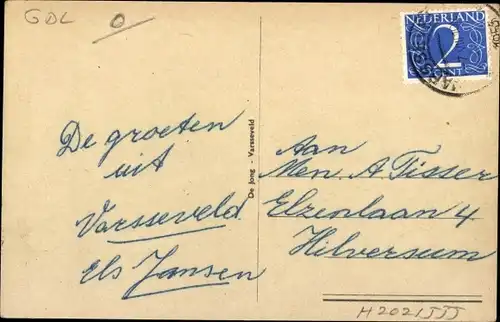 GDL
0
NEDERLAND
2
CENT
De groeten
uit
Varsseveld
Els Jansen
De Jong - Varsseveld
Aan
Men. A Tisser
Elzenlaan 4
Hilversum
H2021JJJ